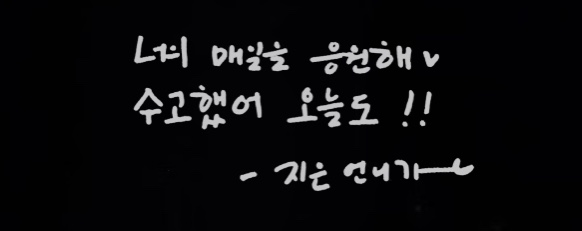 너의 매일을 응원해♥
수고했어 오늘도 !!
- 지은 언니가